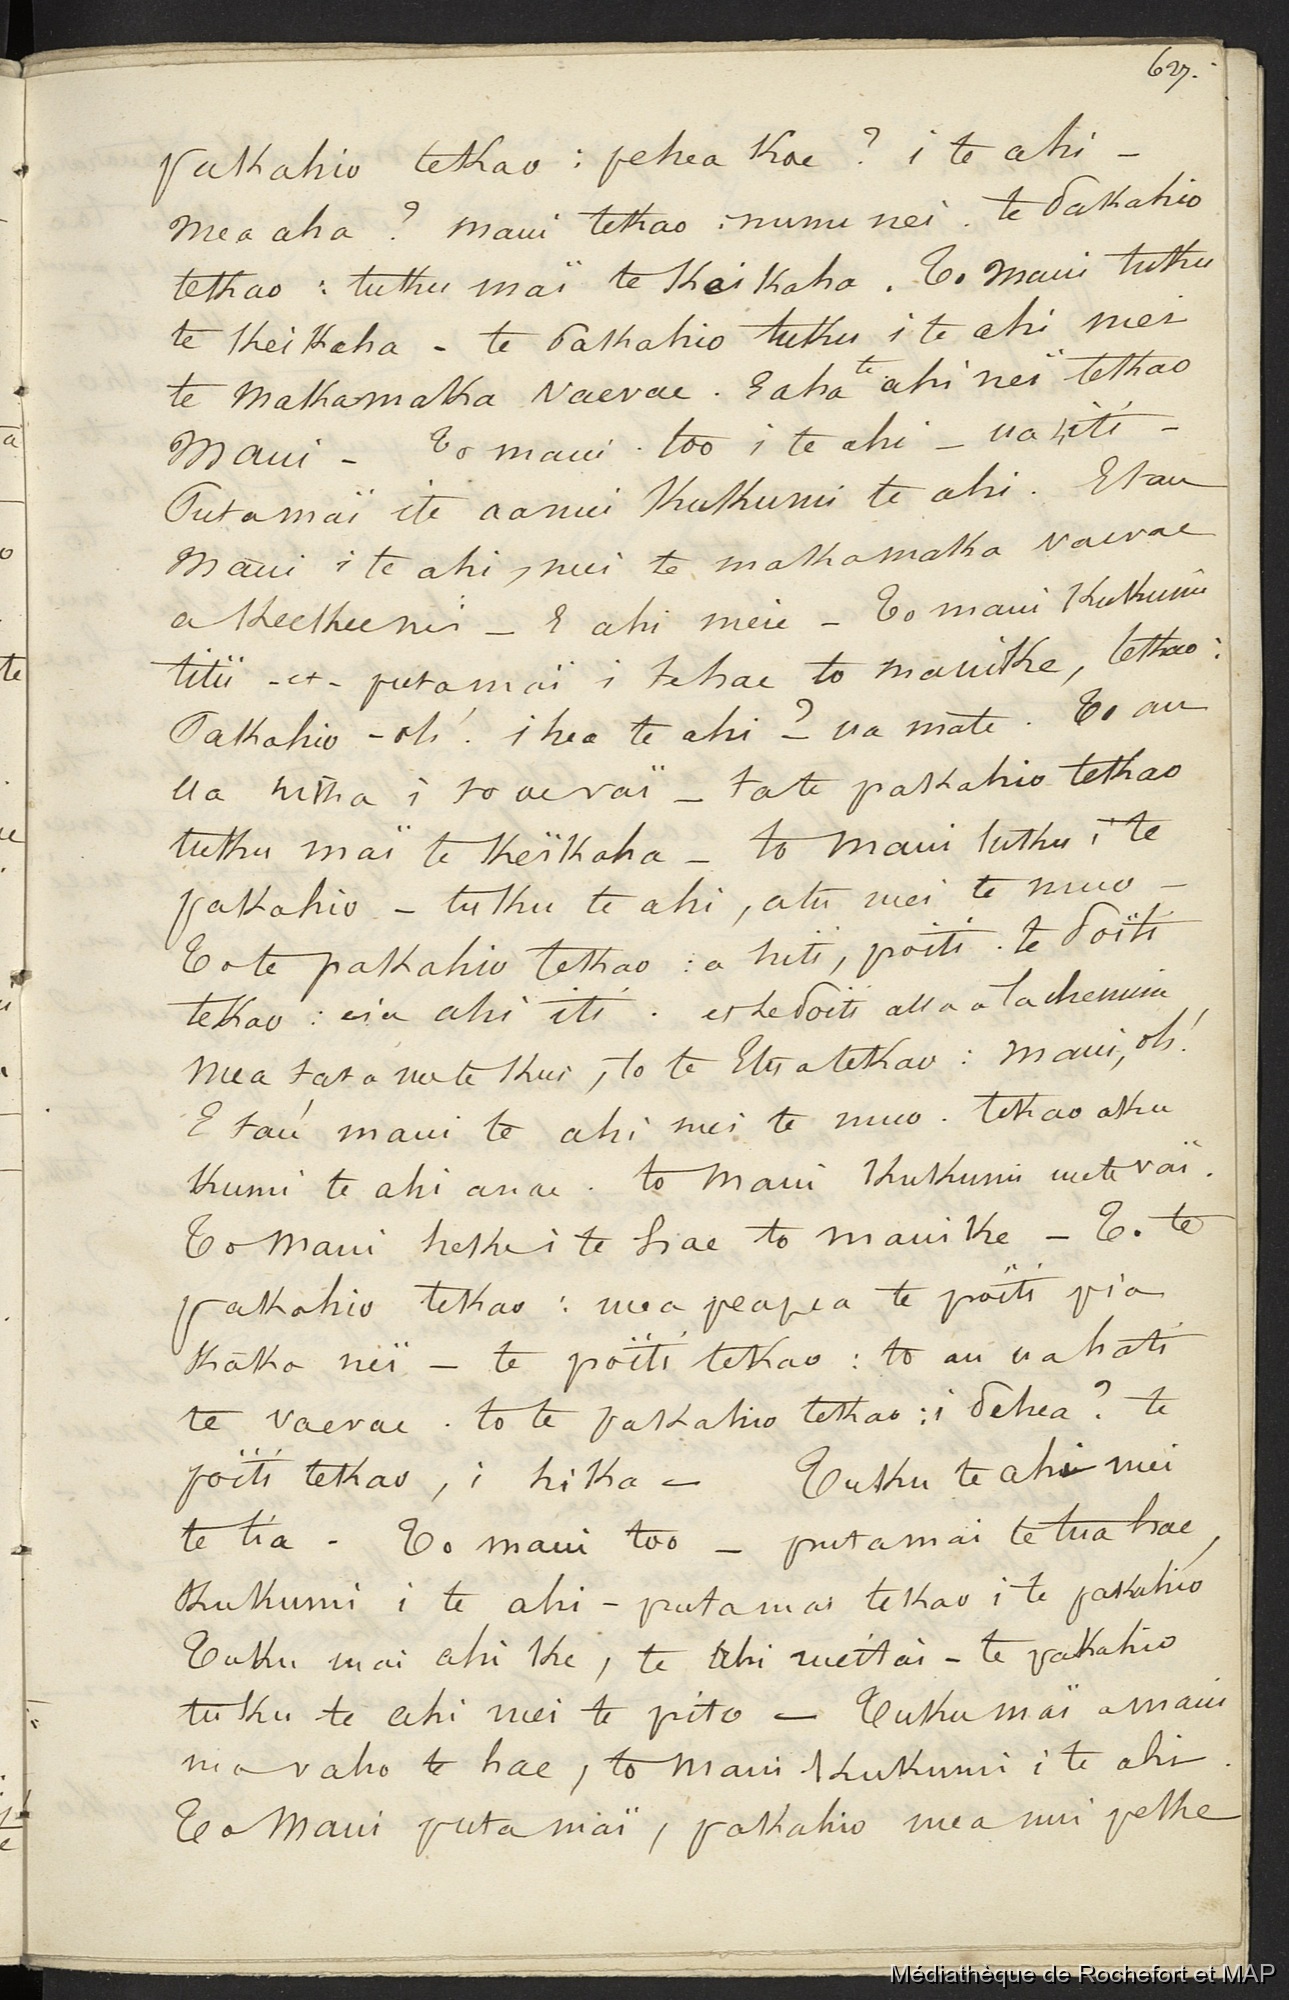 627.
pakahio tekao : pehea koe ? i te ahi –
mea aha ? maui tekao : numu nei . te Pakahio
tekao : tuku maï te keikaha . To Maui tuku
te keikaha – te Pakahio tuku i te ahi mei
te makamaka vaevae . Eaha te ahi neï tekao
Maui – To maui . too i te ahi – ua iti –
Putamaï ite aanui kukumi te ahi . Etau
Maui i te ahi, mei te makamaka vaevae
a keekee – E ahi meie – To maui kukumi
titii – et – putamaï i tehae to mauike, tekao :
Pakahio – oh ! ihea te ahi ? – ua mate . To au
ua hika i to vevaï – tate pakahio tekao
tuku maï te keïkaha – to Maui tuku i te
pakahio – tuku te ahi, atu mei te muo –
Tote pakahio tekao : a hiti, poïti . te Poïti
tekao : eia ahi iti . et te Poiti alla a la chemini
mea tata me te kui, to te Etua tekao : Maui, oh !
E taú maui te ahi mei te muo . tekao aku
kumi te ahi anae . to Maui kukumi me te vaï .
To Maui heke i te hae to mauike – To te
pakahio tekao : mea peapea te poïti pia
kako neï – te poïti tekao : to au ua hati
te vaevae . to te pakahio tekao : i Pehea ? te
poïti tekao, i hika – Tuku te ahi mei
te tia – To maui too – putamai te tua hae,
kukumi i te ahi – putamai tekao i te pakahio
Tuku mai ahi ke, te ahi meitai – te pakahio
tuku te ahi mei te pito – Tukumaï a maui
ma vaho te hae, to Maui kukumi i te ahi .
To Maui putamaï, pakahio mea nui peke
Médiathèque de Rochefort et MAP